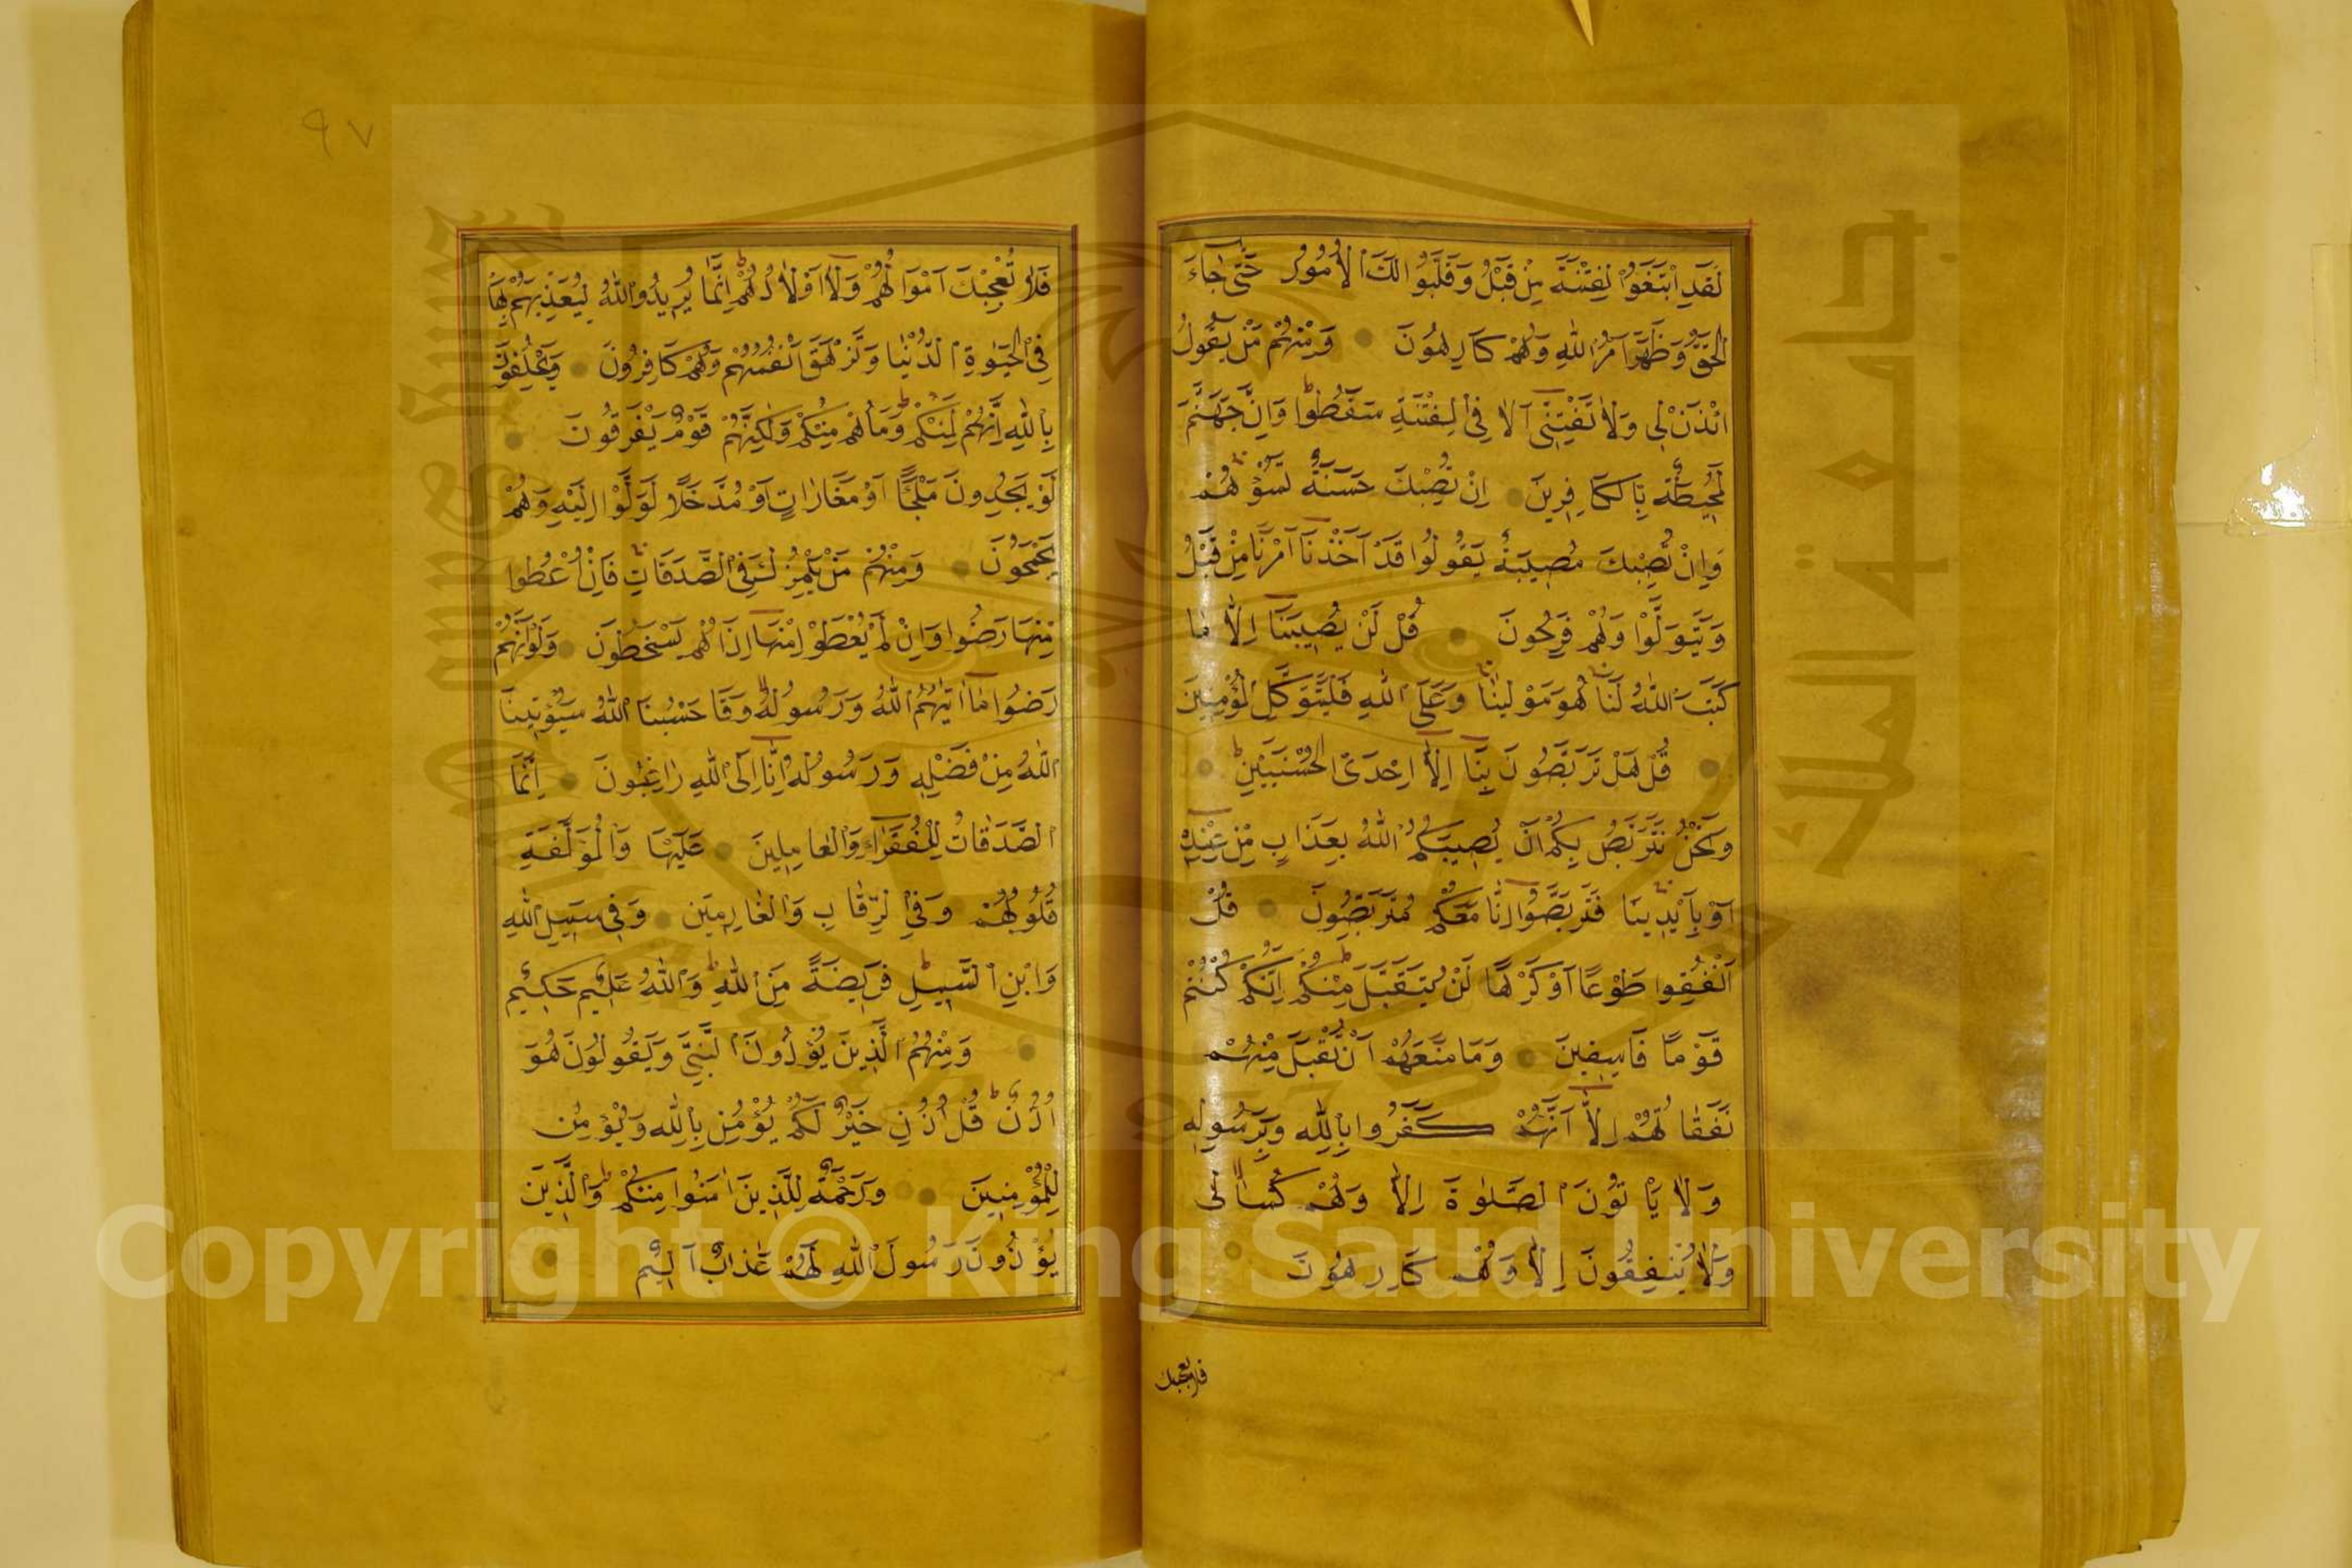 لَقَدِ ابْتَغَوُا الْفِتْنَةَ مِنْ قَبْلُ وَقَلَّبُوا لَكَ الْأُمُورَ حَتّٰى جَاءَ
الْحَقُّ وَظَهَرَ اَمْرُ اللّٰهِ وَهُمْ كَارِهُونَ وَمِنْهُمْ مَنْ يَقُولُ
ائْذَنْ لِي وَلَا تَفْتِنِّي اَلَا فِي الْفِتْنَةِ سَقَطُوا وَاِنَّ جَهَنَّمَ
لَمُحِيطَةٌ بِالْكَافِرِينَ اِنْ تُصِبْكَ حَسَنَةٌ تَسُؤْهُمْ
وَاِنْ تُصِبْكَ مُصِيبَةٌ يَقُولُوا قَدْ اَخَذْنَا اَمْرَنَا مِنْ قَبْلُ
وَيَتَوَلَّوْا وَهُمْ فَرِحُونَ قُلْ لَنْ يُصِيبَنَا اِلَّا مَا
كَتَبَ اللّٰهُ لَنَا هُوَ مَوْلٰينَا وَعَلَى اللّٰهِ فَلْيَتَوَكَّلِ الْمُؤْمِنُونَ
قُلْ هَلْ تَرَبَّصُونَ بِنَا اِلَّا اِحْدَى الْحُسْنَيَيْنِ
وَنَحْنُ نَتَرَبَّصُ بِكُمْ اَنْ يُصِيبَكُمُ اللّٰهُ بِعَذَابٍ مِنْ عِنْدِهِ
اَوْ بِاَيْدِينَا فَتَرَبَّصُوا اِنَّا مَعَكُمْ مُتَرَبِّصُونَ قُلْ
اَنْفِقُوا طَوْعًا اَوْ كَرْهًا لَنْ يُتَقَبَّلَ مِنْكُمْ اِنَّكُمْ كُنْتُمْ
قَوْمًا فَاسِقِينَ وَمَا مَنَعَهُمْ اَنْ تُقْبَلَ مِنْهُمْ
نَفَقَاتُهُمْ اِلَّا اَنَّهُمْ كَفَرُوا بِاللّٰهِ وَبِرَسُولِهِ
وَلَا يَاْتُونَ الصَّلٰوةَ اِلَّا وَهُمْ كُسَالٰى
وَلَا يُنْفِقُونَ اِلَّا وَهُمْ كَارِهُونَ
فلا تعجبك
٩٧
فَلَا تُعْجِبْكَ اَمْوَالُهُمْ وَلَا اَوْلَادُهُمْ اِنَّمَا يُرِيدُ اللّٰهُ لِيُعَذِّبَهُمْ بِهَا
فِي الْحَيٰوةِ الدُّنْيَا وَتَزْهَقَ اَنْفُسُهُمْ وَهُمْ كَافِرُونَ وَيَحْلِفُونَ
بِاللّٰهِ اِنَّهُمْ لَمِنْكُمْ وَمَا هُمْ مِنْكُمْ وَلٰكِنَّهُمْ قَوْمٌ يَفْرَقُونَ
لَوْ يَجِدُونَ مَلْجَأً اَوْ مَغَارَاتٍ اَوْ مُدَّخَلًا لَوَلَّوْا اِلَيْهِ وَهُمْ
يَجْمَحُونَ وَمِنْهُمْ مَنْ يَلْمِزُكَ فِي الصَّدَقَاتِ فَاِنْ اُعْطُوا
مِنْهَا رَضُوا وَاِنْ لَمْ يُعْطَوْا مِنْهَا اِذَا هُمْ يَسْخَطُونَ وَلَوْ اَنَّهُمْ
رَضُوا مَا اٰتٰيهُمُ اللّٰهُ وَرَسُولُهُ وَقَالُوا حَسْبُنَا اللّٰهُ سَيُؤْتِينَا
اللّٰهُ مِنْ فَضْلِهِ وَرَسُولُهُ اِنَّا اِلَى اللّٰهِ رَاغِبُونَ اِنَّمَا
الصَّدَقَاتُ لِلْفُقَرَاءِ وَالْعَامِلِينَ عَلَيْهَا وَالْمُؤَلَّفَةِ
قُلُوبُهُمْ وَفِي الرِّقَابِ وَالْغَارِمِينَ وَفِي سَبِيلِ اللّٰهِ
وَابْنِ السَّبِيلِ فَرِيضَةً مِنَ اللّٰهِ وَاللّٰهُ عَلِيمٌ حَكِيمٌ
وَمِنْهُمُ الَّذِينَ يُؤْذُونَ النَّبِيَّ وَيَقُولُونَ هُوَ
اُذُنٌ قُلْ اُذُنُ خَيْرٍ لَكُمْ يُؤْمِنُ بِاللّٰهِ وَيُؤْمِنُ
لِلْمُؤْمِنِينَ وَرَحْمَةٌ لِلَّذِينَ اٰمَنُوا مِنْكُمْ وَالَّذِينَ
يُؤْذُونَ رَسُولَ اللّٰهِ لَهُمْ عَذَابٌ اَلِيمٌ
جامعة الملك سعود
King Saud University
1957
Copyright © King Saud University